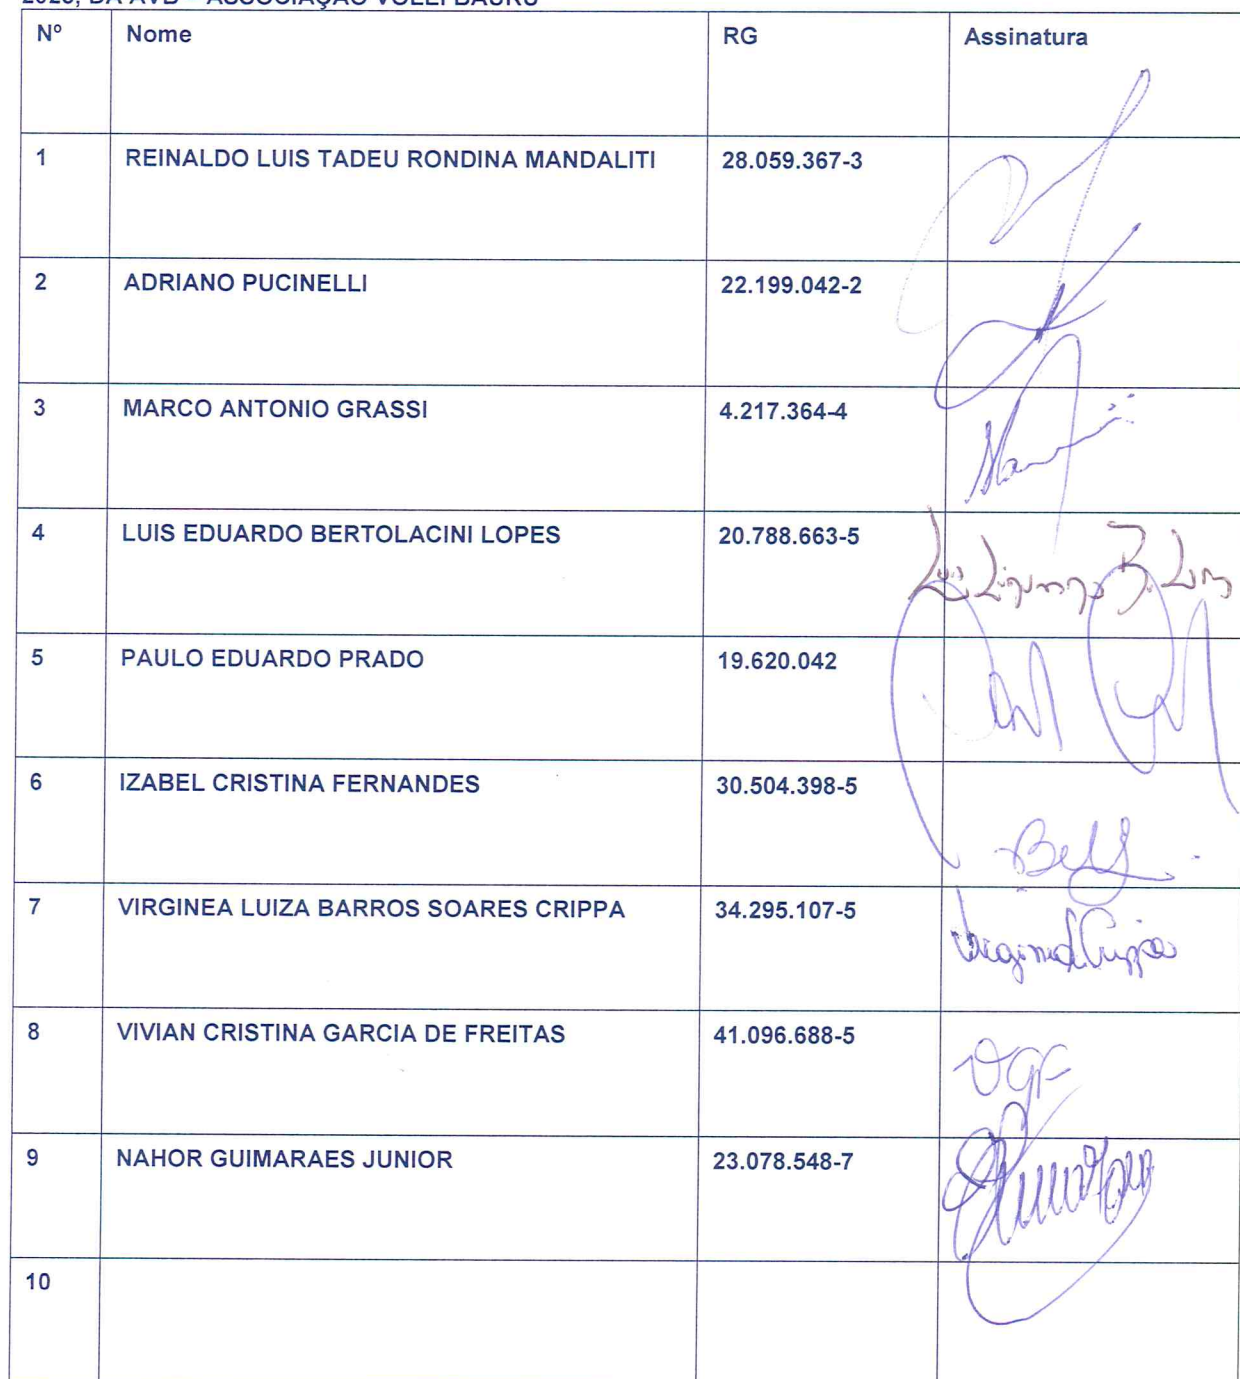 2023, DA AVB – ASSOCIAÇÃO VÔLEI BAURU
Nº Nome RG Assinatura
1 REINALDO LUIS TADEU RONDINA MANDALITI 28.059.367-3
2 ADRIANO PUCINELLI 22.199.042-2
3 MARCO ANTONIO GRASSI 4.217.364-4
4 LUIS EDUARDO BERTOLACINI LOPES 20.788.663-5
5 PAULO EDUARDO PRADO 19.620.042
6 IZABEL CRISTINA FERNANDES 30.504.398-5
7 VIRGINEA LUIZA BARROS SOARES CRIPPA 34.295.107-5
8 VIVIAN CRISTINA GARCIA DE FREITAS 41.096.688-5
9 NAHOR GUIMARAES JUNIOR 23.078.548-7
10